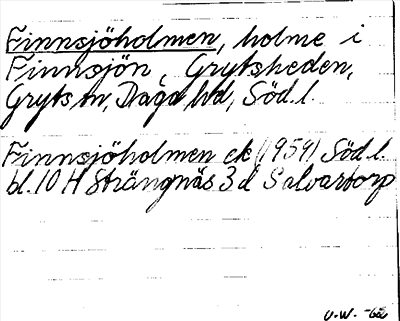 Finnsjöholmen, holme i
Finnsjön, Grytsheden,
Gryts sn, Daga hd, Söd.l.
Finnsjöholmen ek (1959) Söd.l.
bl. 10 H Strängnäs 3 d Salvartorp
U.W. -62